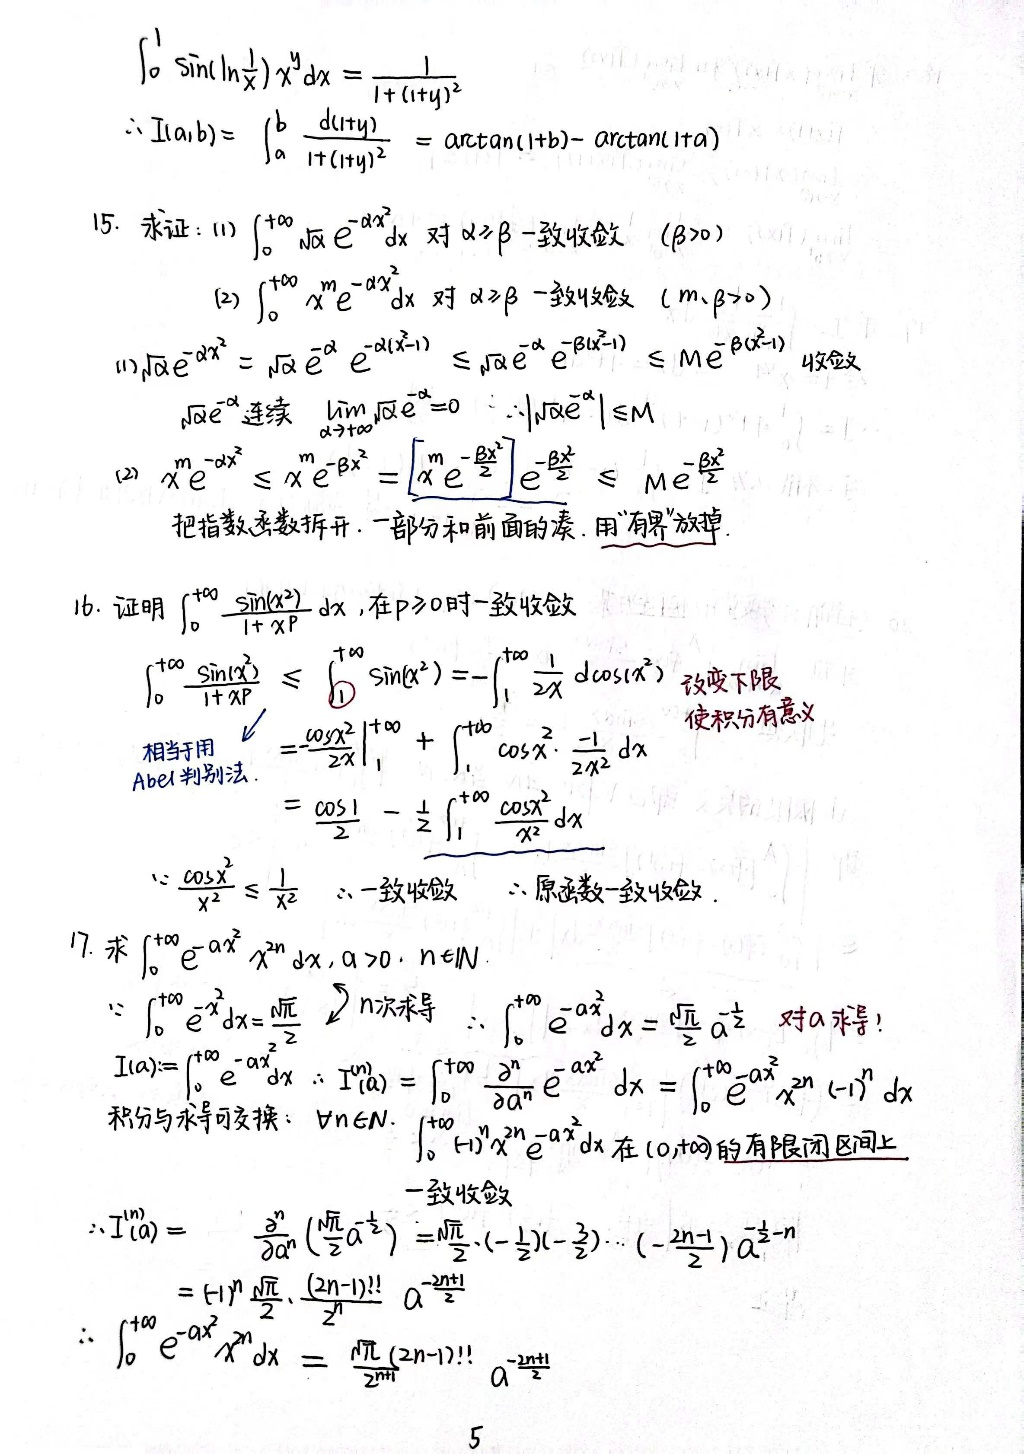 ∫₀¹ sin(ln 1/x) x^y dx = 1/(1+(1+y)²)
∴ I(a,b) = ∫ₐᵇ d(1+y)/(1+(1+y)²) = arctan(1+b) - arctan(1+a)
15. 求证: (1) ∫₀^{+∞} √α e^{-αx²} dx 对 α≥β 一致收敛 (β>0)
(2) ∫₀^{+∞} x^m e^{-αx²} dx 对 α≥β 一致收敛 (m、β>0)
(1) √α e^{-αx²} = √α e^{-α} e^{-α(x²-1)} ≤ √α e^{-α} e^{-β(x²-1)} ≤ M e^{-β(x²-1)} 收敛
√α e^{-α} 连续 lim_{α→+∞} √α e^{-α} = 0 ∴ |√α e^{-α}| ≤ M
(2) x^m e^{-αx²} ≤ x^m e^{-βx²} = [x^m e^{-βx²/2}] e^{-βx²/2} ≤ M e^{-βx²/2}
把指数函数拆开. 一部分和前面的凑. 用"有界"放掉.
16. 证明 ∫₀^{+∞} sin(x²)/(1+x^p) dx, 在 p≥0 时一致收敛
∫₀^{+∞} sin(x²)/(1+x^p) ≤ ∫₁^{+∞} sin(x²) = -∫₁^{+∞} 1/(2x) d cos(x²) 改变下限
使积分有意义
相当于用
Abel 判别法.
= -cosx²/(2x) |₁^{+∞} + ∫₁^{+∞} cosx² · -1/(2x²) dx
= cos1/2 - 1/2 ∫₁^{+∞} cosx²/x² dx
∵ cosx²/x² ≤ 1/x² ∴ 一致收敛 ∴ 原函数一致收敛.
17. 求 ∫₀^{+∞} e^{-ax²} x^{2n} dx, a>0. n∈ℕ.
∵ ∫₀^{+∞} e^{-x²} dx = √π/2 n次求导 ∴ ∫₀^{+∞} e^{-ax²} dx = √π/2 a^{-1/2} 对a求导!
I(a):= ∫₀^{+∞} e^{-ax²} dx ∴ I^{(n)}(a) = ∫₀^{+∞} ∂ⁿ/∂aⁿ e^{-ax²} dx = ∫₀^{+∞} e^{-ax²} x^{2n} (-1)ⁿ dx
积分与求导可交换: ∀n∈N. ∫₀^{+∞} (-1)ⁿ x^{2n} e^{-ax²} dx 在 (0,+∞) 的有限闭区间上
一致收敛
∴ I^{(n)}(a) = ∂ⁿ/∂aⁿ (√π/2 a^{-1/2}) = √π/2 · (-1/2)(-3/2)⋯(-(2n-1)/2) a^{-1/2-n}
= (-1)ⁿ √π/2 · (2n-1)!!/2ⁿ a^{-(2n+1)/2}
∴ ∫₀^{+∞} e^{-ax²} x^{2n} dx = √π(2n-1)!!/2^{n+1} a^{-(2n+1)/2}
5